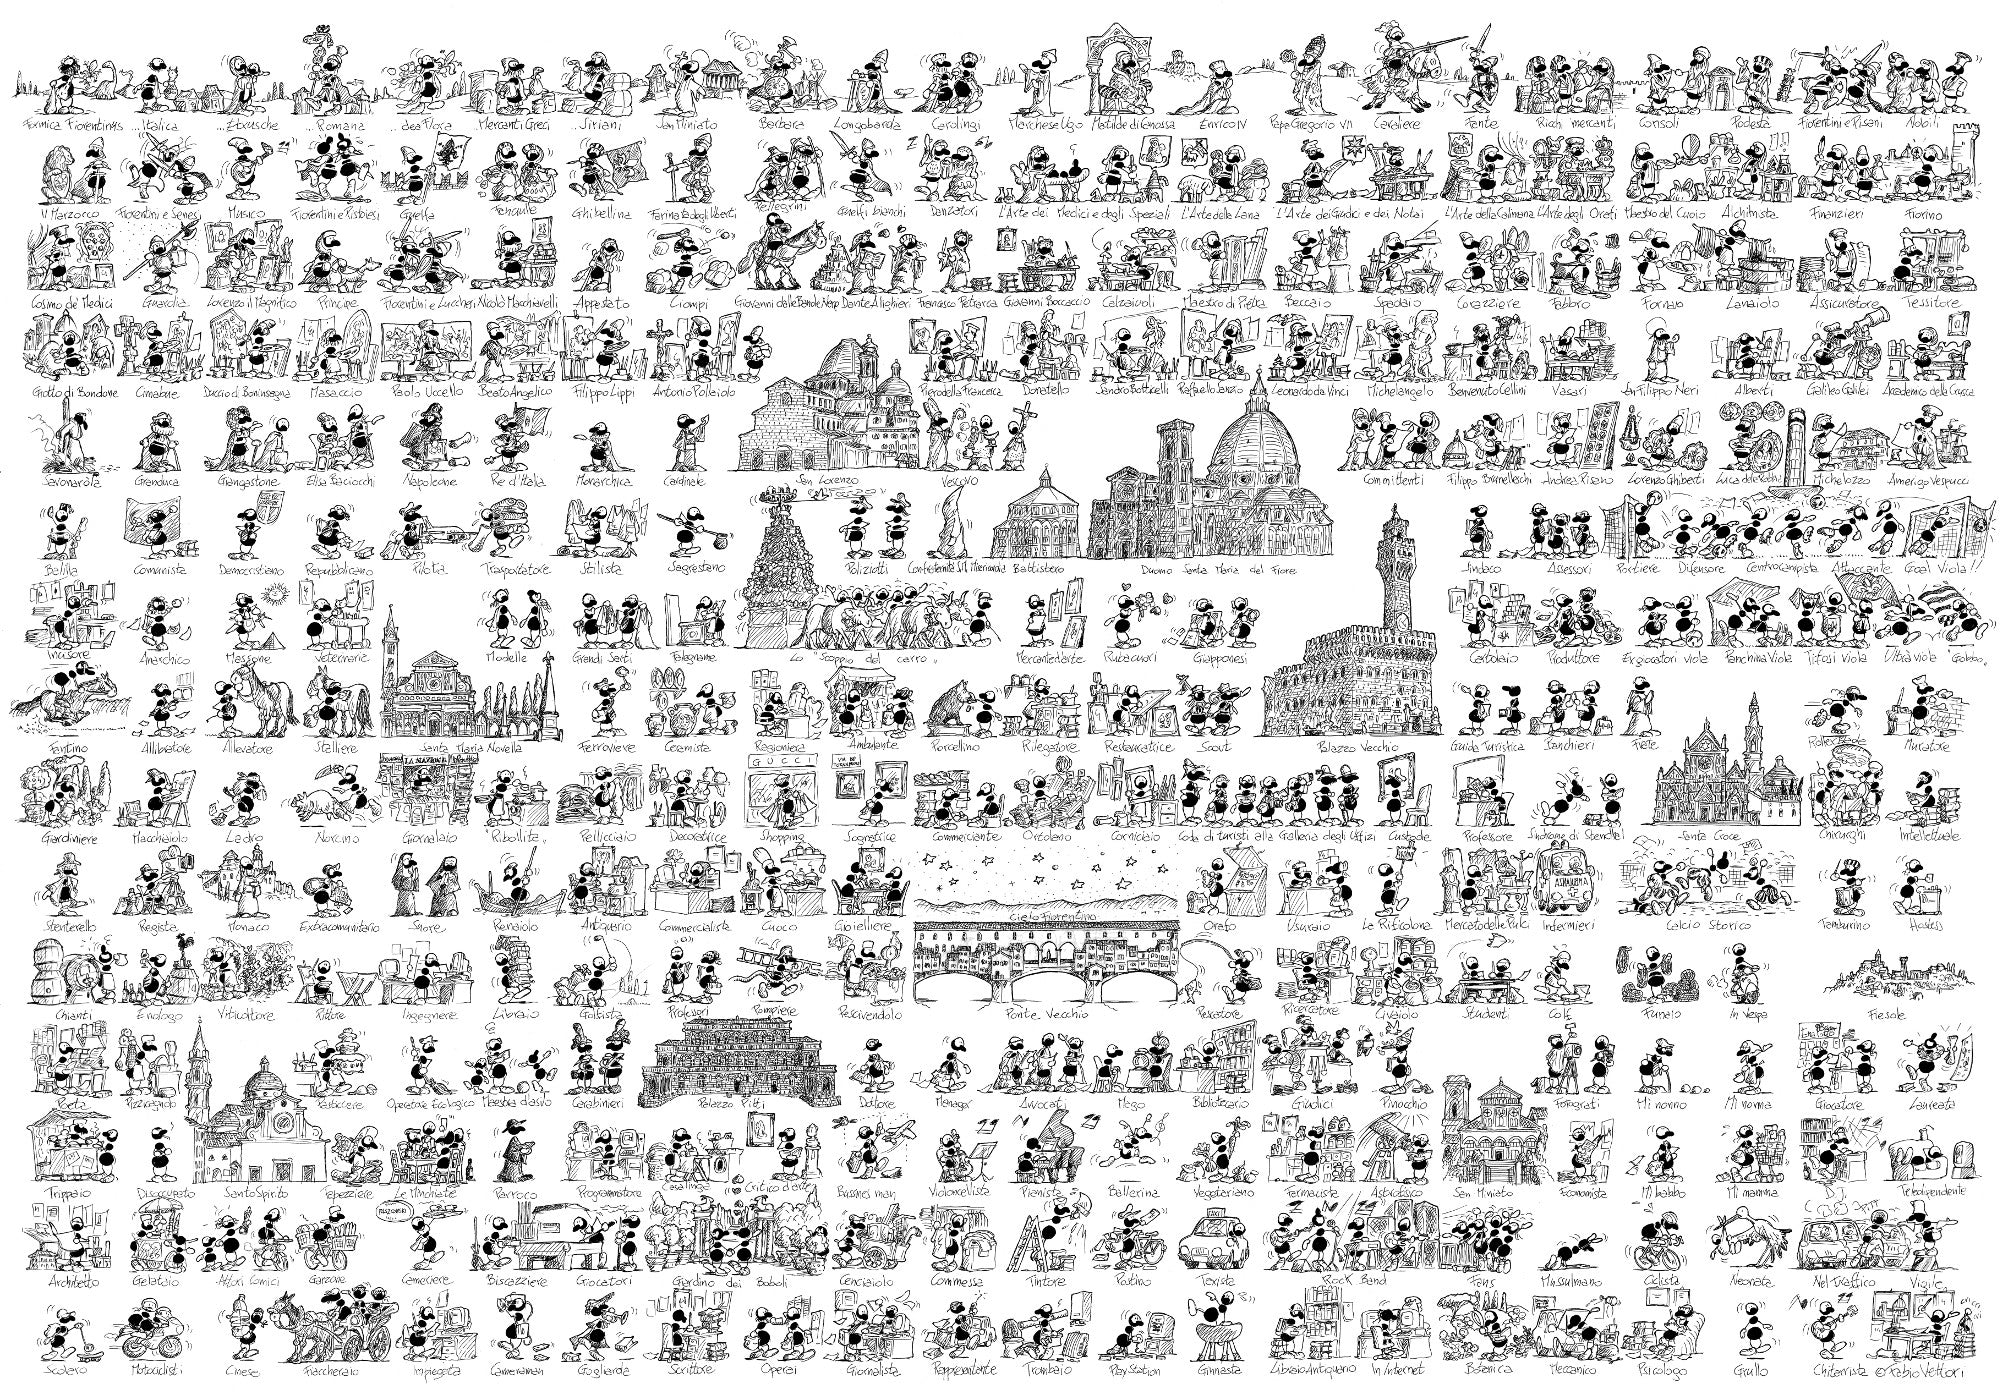 Formica Fiorentinus ...Italica ...Etrusche ...Romana ...dea Flora ...Mercanti Greci ...Siriani San Miniato Barbara Longobarda Carolingi Marchese Ugo Matilde di Canossa Enrico IV Papa Gregorio VII Cavaliere Fante Ricchi mercanti Consoli Podestà Fiorentini e Pisani Nobili
Il Marzocco Fiorentini e Senesi Musico Fiorentini e Pistoiesi Guelfa Fanciulle Ghibellina Farinata degli Uberti Pellegrini Guelfi bianchi Danzatori L'Arte dei Medici e degli Speziali L'Arte della Lana L'Arte dei Giudici e dei Notai L'Arte della Calimala L'Arte degli Orafi Maestro del Cuoio Alchimista Finanzieri Fiorino
Cosimo de' Medici Guardia Lorenzo il Magnifico Principe Fiorentini e Lucchesi Nicolò Machiavelli Appestato Ciompi Giovanni delle Bande Nere Dante Alighieri Francesco Petrarca Giovanni Boccaccio Calzaiuoli Maestro di Pietra Beccaio Spadaio Corazziere Fabbro Fornaio Lanaiolo Assicuratore Tessitore
Giotto di Bondone Cimabue Duccio di Boninsegna Masaccio Paolo Uccello Beato Angelico Filippo Lippi Antonio Pollaiolo Piero della Francesca Donatello Sandro Botticelli Raffaello Sanzio Leonardo da Vinci Michelangelo Benvenuto Cellini Vasari San Filippo Neri Alberti Galileo Galilei Accademico della Crusca
Savonarola Granduca Giangastone Elisa Baciocchi Napoleone Re d'Italia Monarchica Cardinale San Lorenzo Vescovo Committenti Filippo Brunelleschi Andrea Pisano Lorenzo Ghiberti Luca della Robbia Michelozzo Amerigo Vespucci
Balilla Comunista Democristiano Repubblicano Pilota Trasportatore Stilista Sagrestano Poliziotti Confraternita S.M. Misericordia Battistero Duomo Santa Maria del Fiore Sindaco Assessori Portiere Difensore Centrocampista Attaccante Goal Viola!!
Incisore Anarchico Massone Veterinaria Modelle Grandi Sarti Falegname Lo "Scoppio del carro" Mercante d'arte Rubacuori Giapponesi Cartolaio Produttore Ex giocatori viola Panchina Viola Tifosi Viola Ultrà viola "Gobbo"
Fantino Allibratore Allevatore Stalliere Santa Maria Novella Ferroviere Ceramista Ragioniera Ambulante Porcellino Rilegatore Restauratrice Scout Palazzo Vecchio Guida turistica Banchieri Prete Muratore
LA NAZIONE
GUCCI
Giardiniere Macchiaiolo Ladro Norcino Giornalaio "Ribollita" Pellicciaio Decoratrice Shopping Sognatrice Commerciante Ortolano Corniciaio Coda di turisti alla Galleria degli Uffizi Custode Professore Sindrome di Stendhal Santa Croce Chirurghi Intellettuale
AMBULANZA
Cielo Fiorentino
Stenterello Regista Monaco Extracomunitario Suore Renaiolo Antiquario Commercialista Cuoco Gioielliere Orafo Usuraio La Rificolona Mercato delle Pulci Infermieri Calcio Storico Tamburino Hostess
Chianti Enologo Viticoltore Pittore Ingegnere Libraio Golfista Professori Pompiere Pescivendolo Ponte Vecchio Pescatore Ricercatore Civaiolo Studenti Funaio In Vespa Fiesole
Poeta Pizzicagnolo Pasticcere Operatore Ecologico Maestra d'asilo Carabinieri Palazzo Pitti Dottore Manager Avvocati Mago Bibliotecario Giudici Pinocchio Fotografi Mi nonno Mi nonna Giocatore Laureata
Trippaio Disoccupato Santo Spirito Tappezziere Le Minchiate Parroco Programmatore Casalinga Critico d'arte Bussines man Violoncellista Pianista Ballerina Vegetariano Farmacista Astrofisico San Miniato Economista Mi babbo Mi mamma D.J. Teledipendente
TAXI
Architetto Gelataio Attori Comici Garzone Cameriere Biscazziere Giocatori Giardino dei Boboli Cenciaiolo Commessa Tintore Postino Taxista Rock Band Fans Mussulmano Ciclista Neonata Nel Traffico Vigile
Scolaro Motociclisti Cinese Fiaccheraio Impiegata Cameraman Gogliarda Scrittore Operai Giornalista Rappresentante Trombaio Play Station Ginnasta Libraio Antiquario In Internet Botanica Meccanico Psicologo Grullo Chitarrista © Fabio Vettori